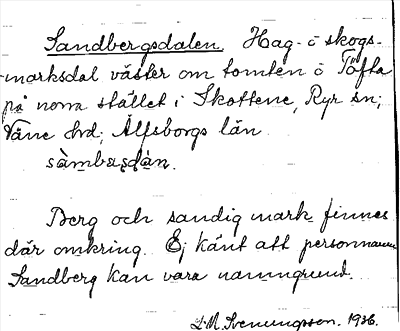 Sandbergsdalen. Hag- o skogs-
marksdal väster om tomten å Töfta
på norra stället i Skottene, Ryr sn;
Väne hd; Älfsborgs län.
sàmbasdàn.
Berg och sandig mark finnes
där omkring. Ej känt att personnamn
Sandberg kan vara namngrund.
D. M. Svenungsson. 1936.